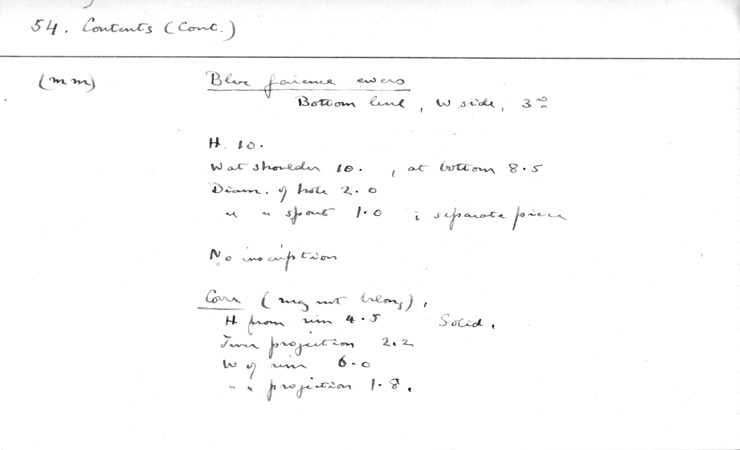 54. Contents (Cont.)
(mm)
Blue faience ewers
Bottom level, W side, 3rd
H. 10.
W at shoulder 10. , at bottom 8.5
Diam. of hole 2.0
" " spout 1.0 ; separate piece
No inscription
Cover (may not belong).
H from rim 4.5 Solid.
Inner projection 2.2
W of rim 6.0
" " projection 1.8.